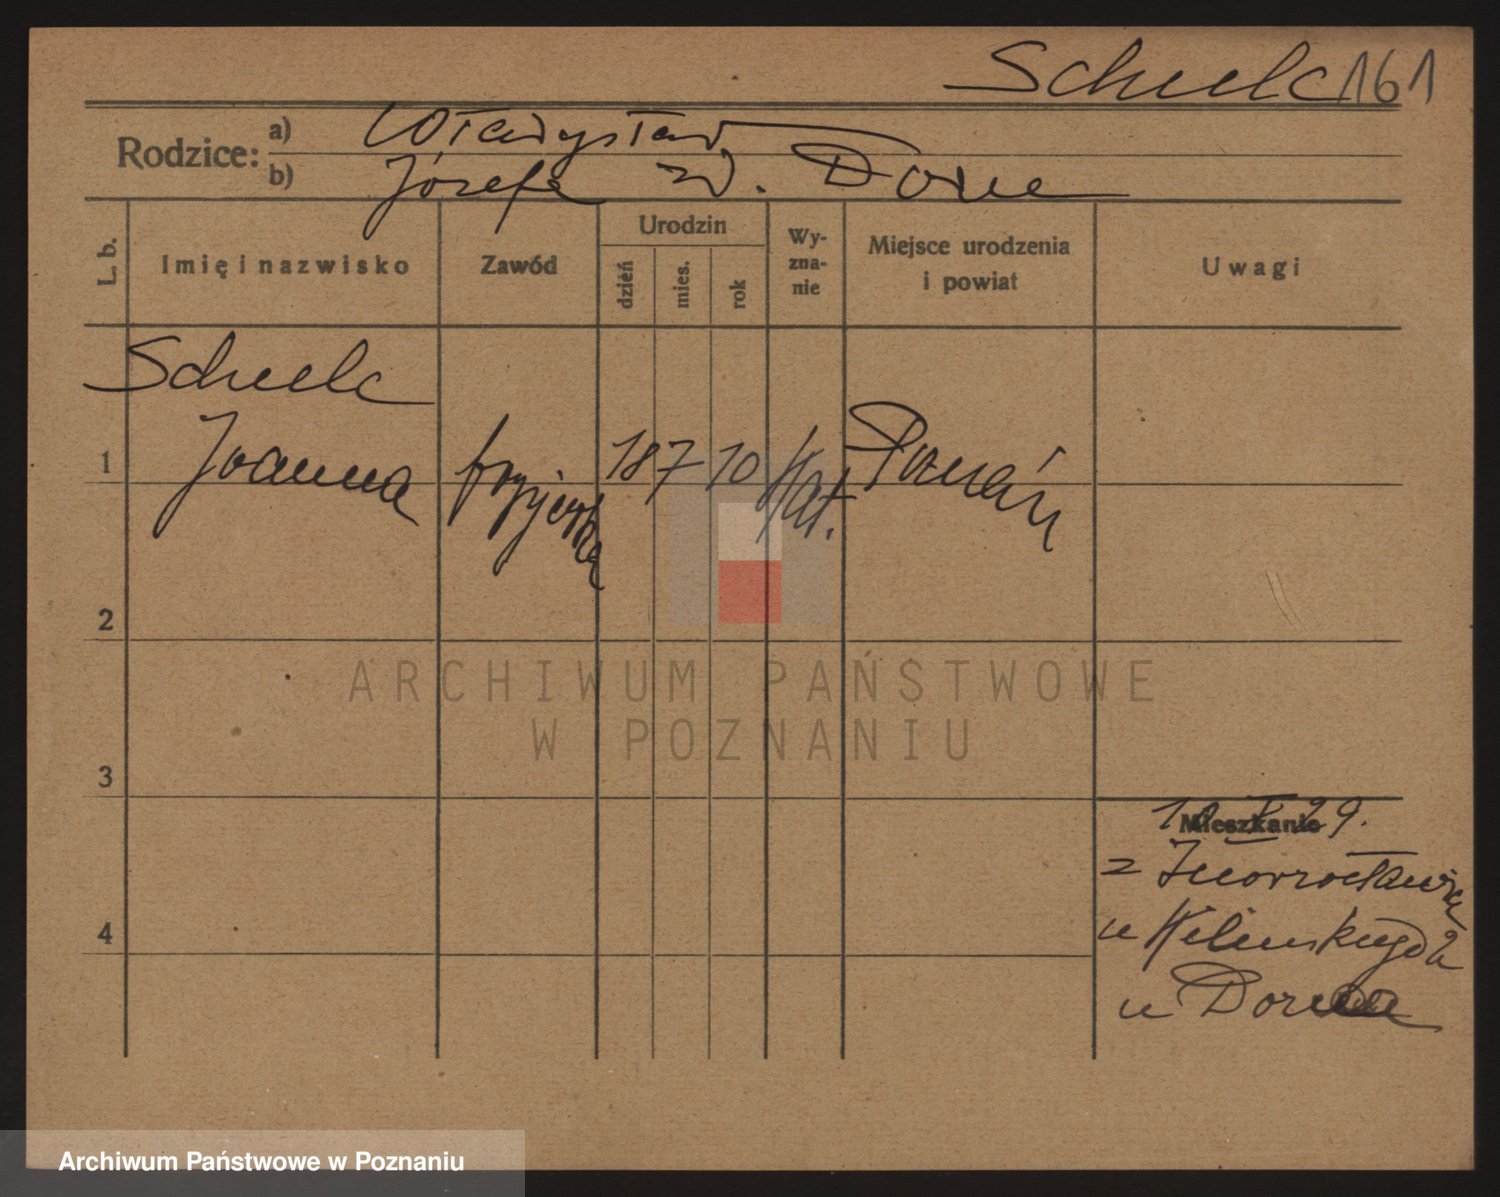 Schulc 161
Rodzice:
a) Władysław
b) Józefa z d. Dorne
L. b.
Imię i nazwisko
Zawód
Urodzin
dzień
mies.
rok
Wy-
zna-
nie
Miejsce urodzenia
i powiat
Uwagi
Schulc
1 Joanna fryzjerka 18 7 10 kat. Poznań
2
3
4
Mieszkanie
29.
z Inowrocławia
u
u
ARCHIWUM PAŃSTWOWE
W POZNANIU
Archiwum Państwowe w Poznaniu